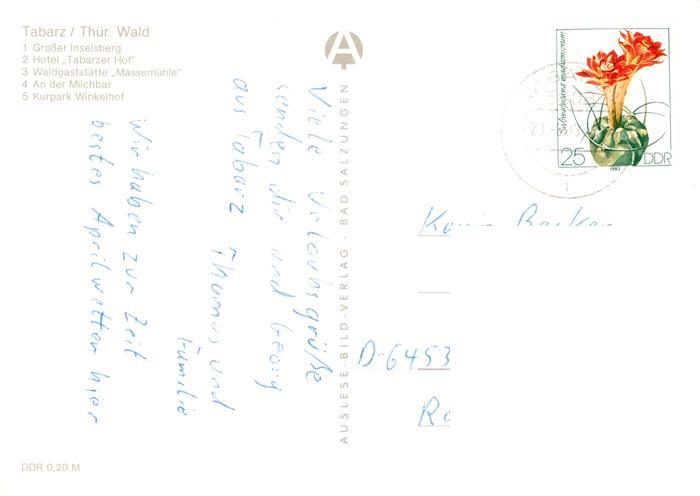 Tabarz / Thür. Wald
1 Großer Inselsberg
2 Hotel „Tabarzer Hof"
3 Waldgaststätte „Massemühle"
4 An der Milchbar
5 Kurpark Winkelhof
Viele Urlaubsgrüße
senden dir und Georg
aus Tabarz Thomas und
Familie
Wir haben zur Zeit
bestes Aprilwetter hier
AUSLESE-BILD-VERLAG · BAD SALZUNGEN
25 DDR
1983
D-6453
DDR 0,20 M